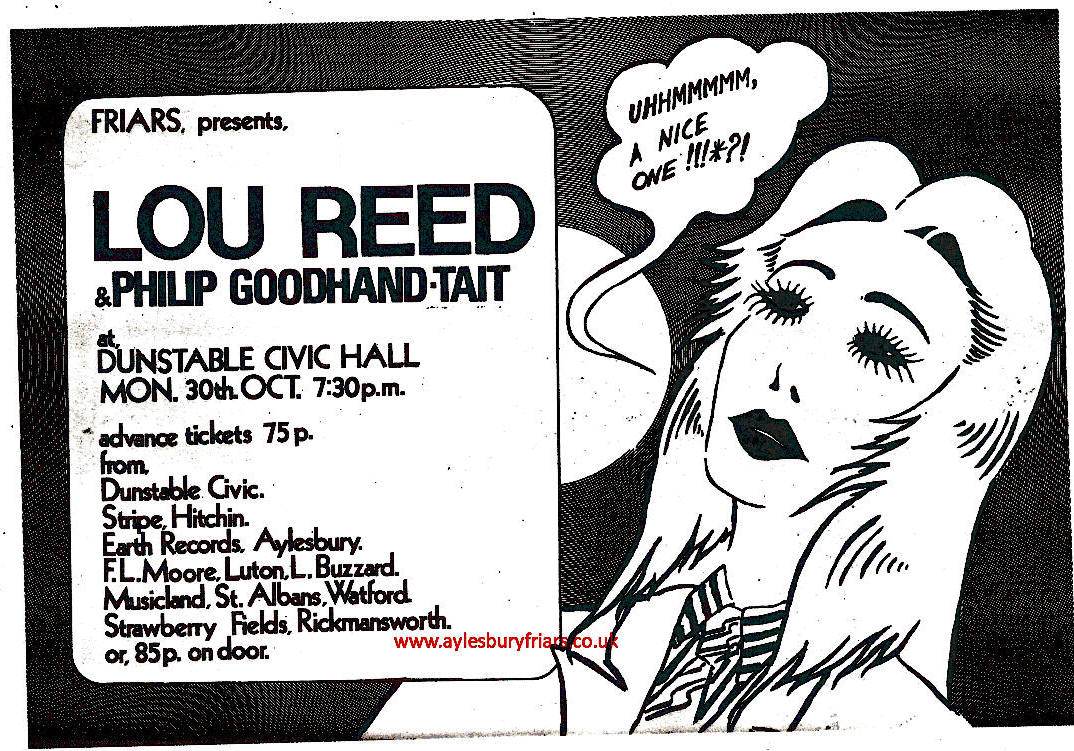 FRIARS, presents,
LOU REED
& PHILIP GOODHAND-TAIT
at,
DUNSTABLE CIVIC HALL
MON. 30th. OCT. 7:30p.m.
advance tickets 75p.
from,
Dunstable Civic.
Stripe, Hitchin.
Earth Records, Aylesbury.
F.L. Moore, Luton, L. Buzzard.
Musicland, St. Albans, Watford.
Strawberry Fields, Rickmansworth.
or, 85p. on door.
www.aylesburyfriars.co.uk
UHHMMMMM,
A NICE
ONE !!!*?!